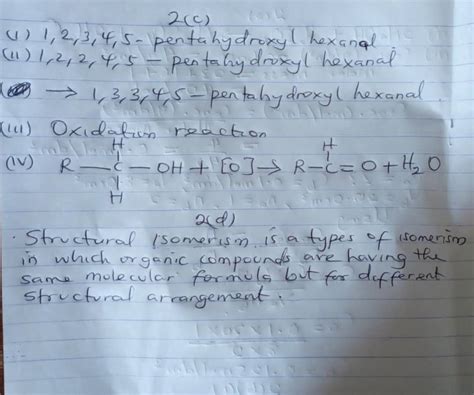 2(c)
(i) 1,2,3,4,5- pentahydroxyl hexanal
(ii) 1,2,2,4,5 – pentahydroxyl hexanal
→ 1,3,3,4,5 – pentahydroxyl hexanal.
(iii) Oxidation reaction
H H
(iv) R — C — OH + [O] → R – C = O + H2O
H
2(d)
Structural Isomerism is a types of isomerism
in which organic compounds are having the
same molecular formula but for different
structural arrangement.